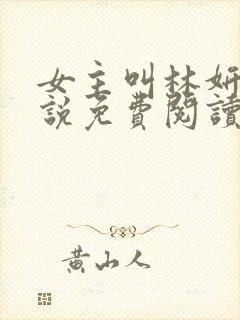 女主叫林妍
說免費閱讀
黃山人